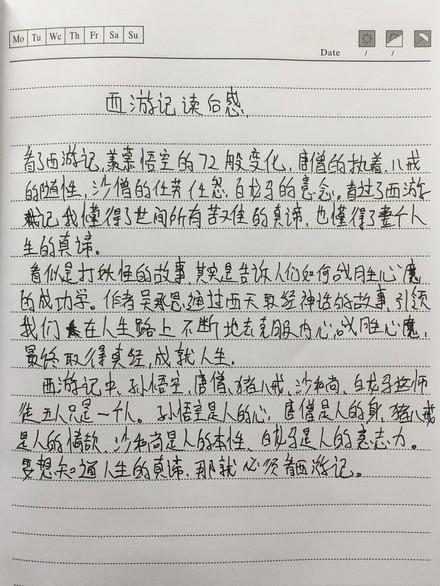 Mo Tu We Th Fr Sa Su
Date / /
西游记读后感
看了西游记,羡慕悟空的72般变化,唐僧的执着,八戒
的随性,沙僧的任劳任怨,白龙马的意念。看过了西游
记我懂得了世间所有苦难的真谛,也懂得了整个人
生的真谛。
看似是打妖怪的故事,其实是告诉人们如何战胜心魔
的成功学。作者吴承恩,通过西天取经神话的故事,引领
我们在人生路上不断地去克服内心,战胜心魔,
最终取得真经,成就人生.
西游记中,孙悟空,唐僧,猪八戒,沙和尚,白龙马拉师
徒五人只是一个人。孙悟空是人的心,唐僧是人的身,猪八戒
是人的情欲,沙和尚是人的本性,白龙马是人的意志力。
要想知道人生的真谛,那就必须看西游记。